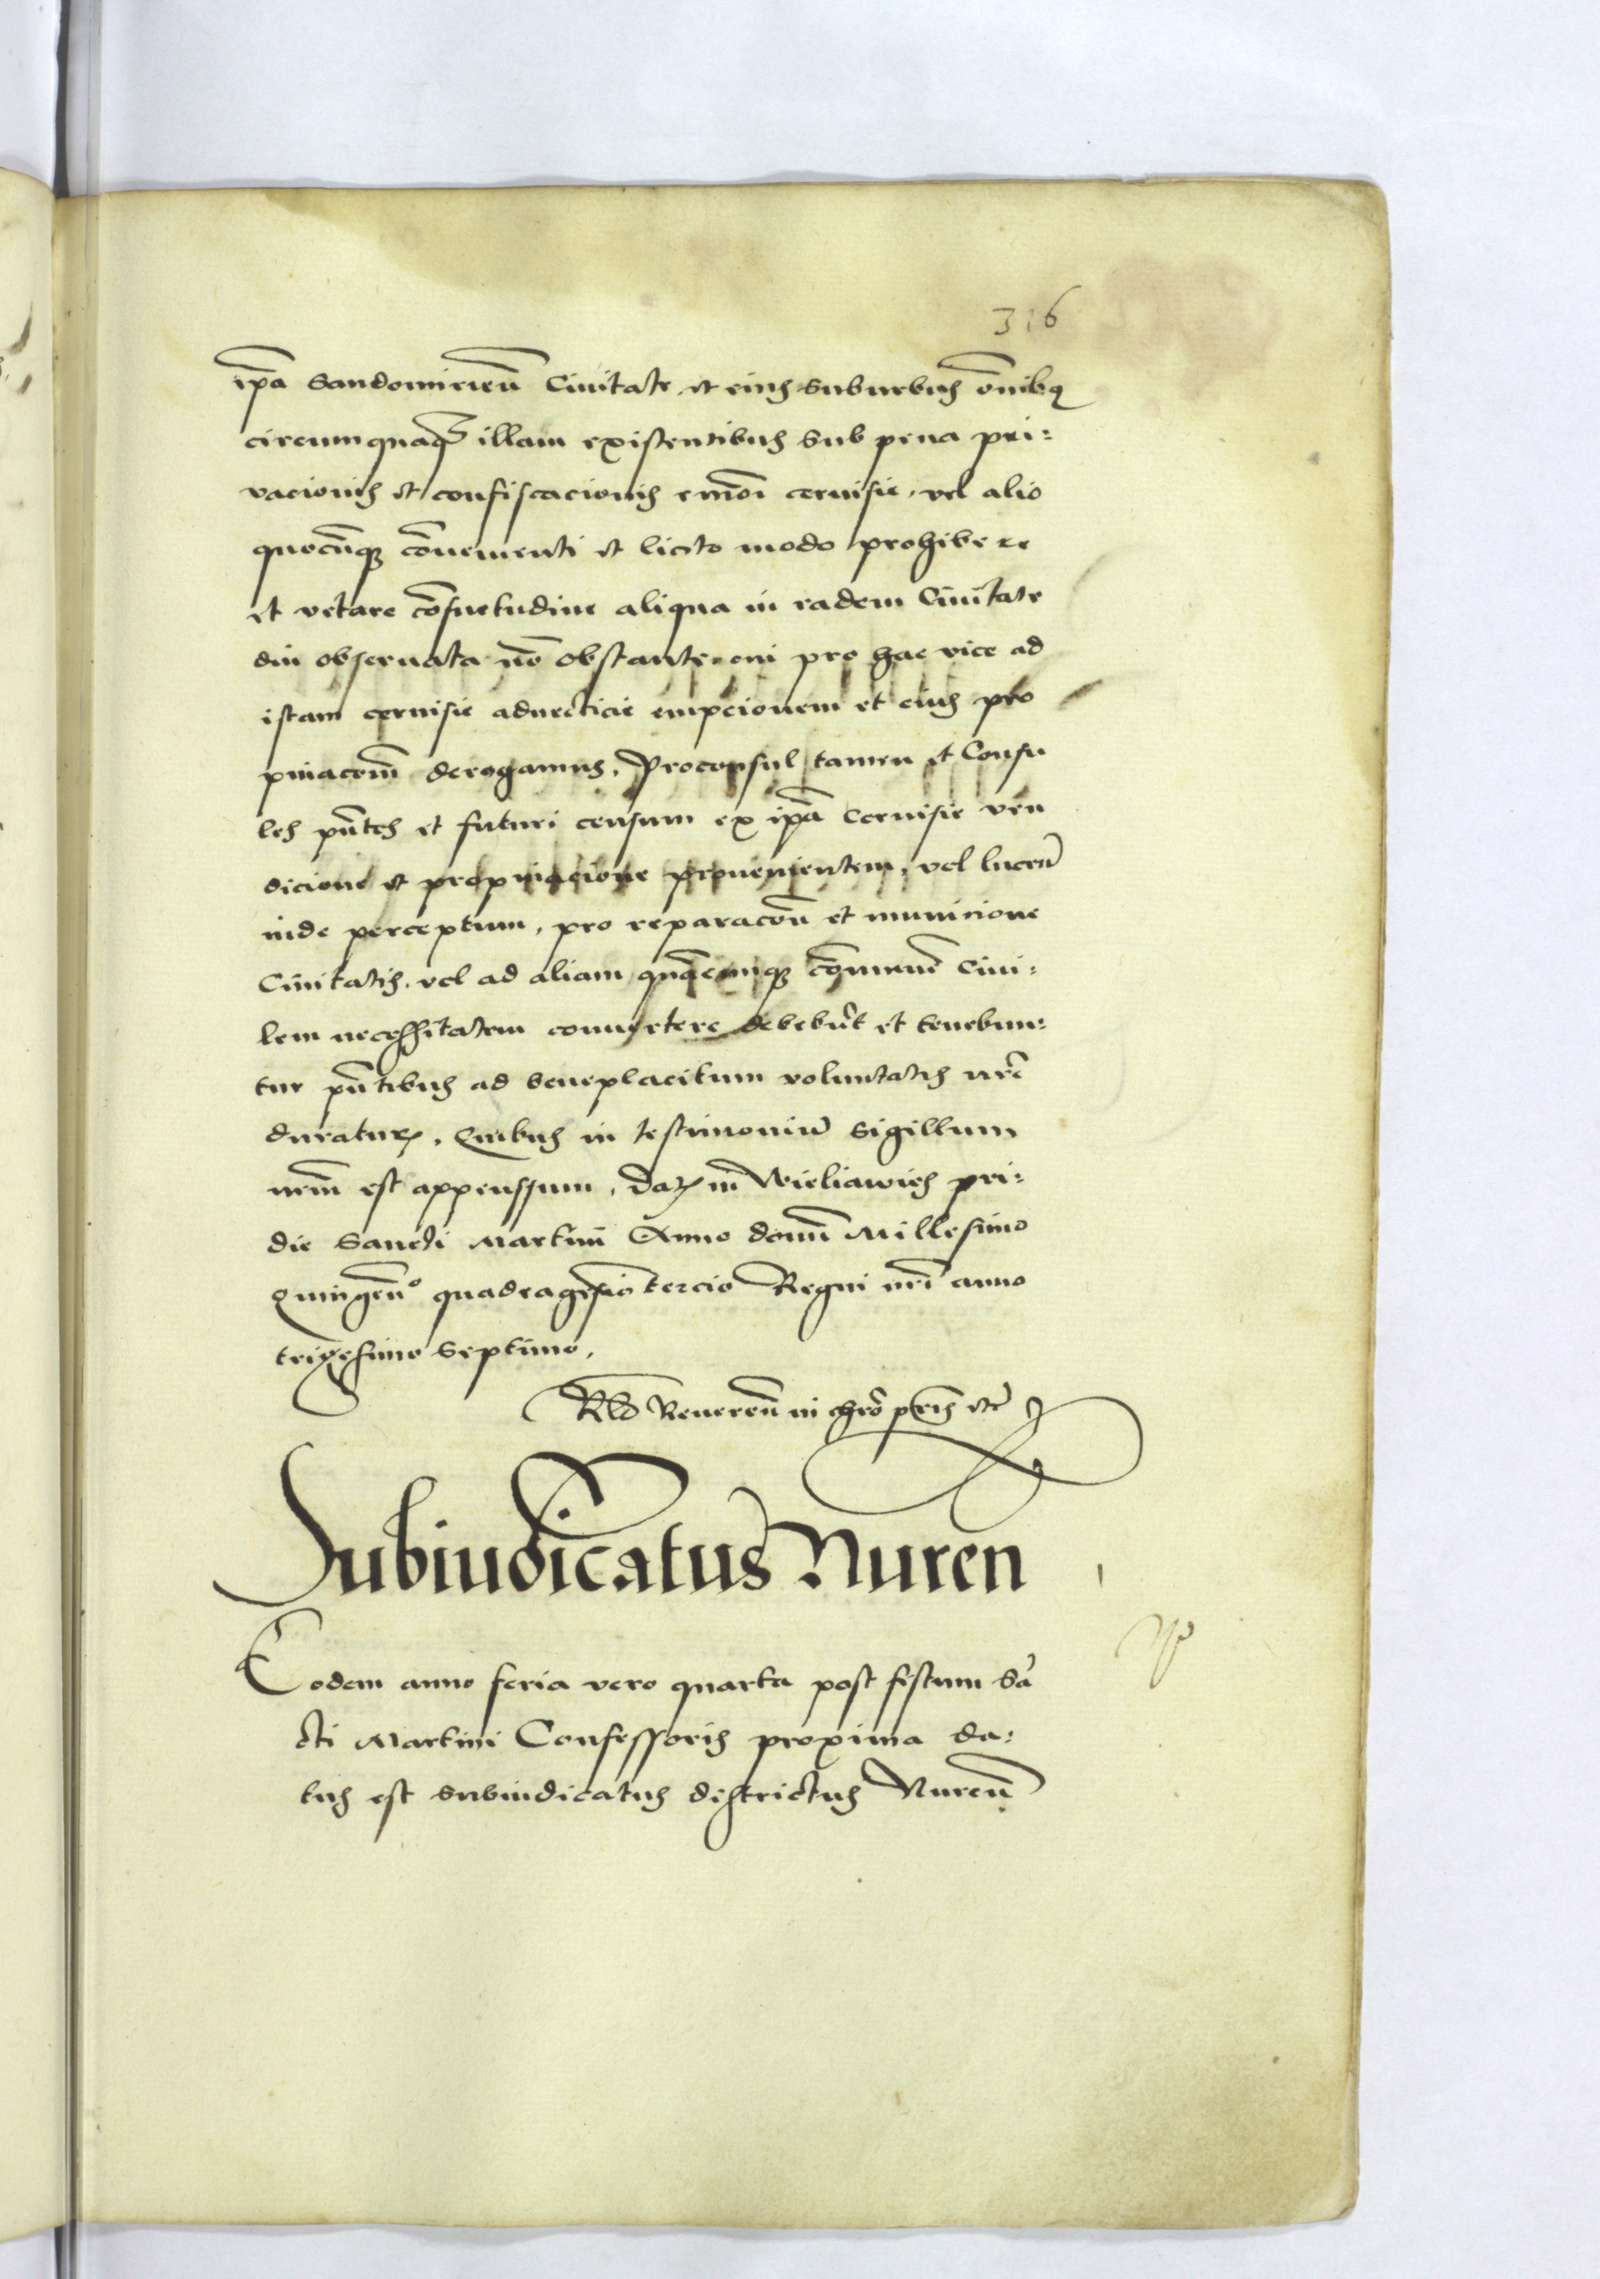 316
ipa Sandomirien Ciuitate et eius suburbijs omibus
circumquaq illam existentibus sub pena pri:
vacionis et confiscacionis emoi ceruisie, vel alio
quocunq conuenienti et licito modo prohibere
et vetare consuetudine aliqua in eadem Ciuitate
diu obseruata no obstante, cui pro hac vice ad
istam ceruisie aduecticie empcionem et eius pro
pinacom derogamus, Proconsul tamen et Consu
les pntes et futuri censum ex ipa ceruisie ven
dicione et propinacione prouenientem, vel lucru
inde perceptum, pro reparacon et municione
Ciuitatis, vel ad aliam quacumq comunem Ciui:
lem necessitatem conuertere debebut et tenebun:
tur pntibus ad beneplacitum voluntatis nre
duratur, Quibus in testimoniu Sigillum
nrm est appenssum, Dat in Wieliawies pri:
die Sancti Martini Anno domi Millesimo
Quingen° quadragesio tercio Regni nri anno
trigesimo septimo,
Rlo Reueren in chro pris etc
Subiudicatus Nuren
Eodem anno feria vero quarta post festum Sa
cti Martini Confessoris proxima da:
tus est subiudicatus districtus Nuren